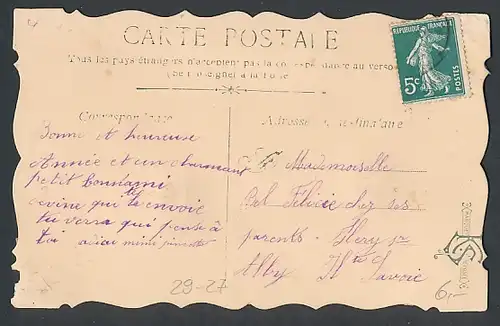 CARTE POSTALE
Tous les pays étrangers n'acceptent pas la correspondance au verso
(Se renseigner à la Poste)
REPUBLIQUE FRANÇAISE
5c
POSTES
Correspondance
Adresse du destinataire
Bonne et heureuse
Année et un charmant
petit
qui te envoie
tu verra qui pense à
toi
Mademoiselle
Bel Félicie chez ses
parents - Héry sr
Alby Hte Savoie
29-27
6,-